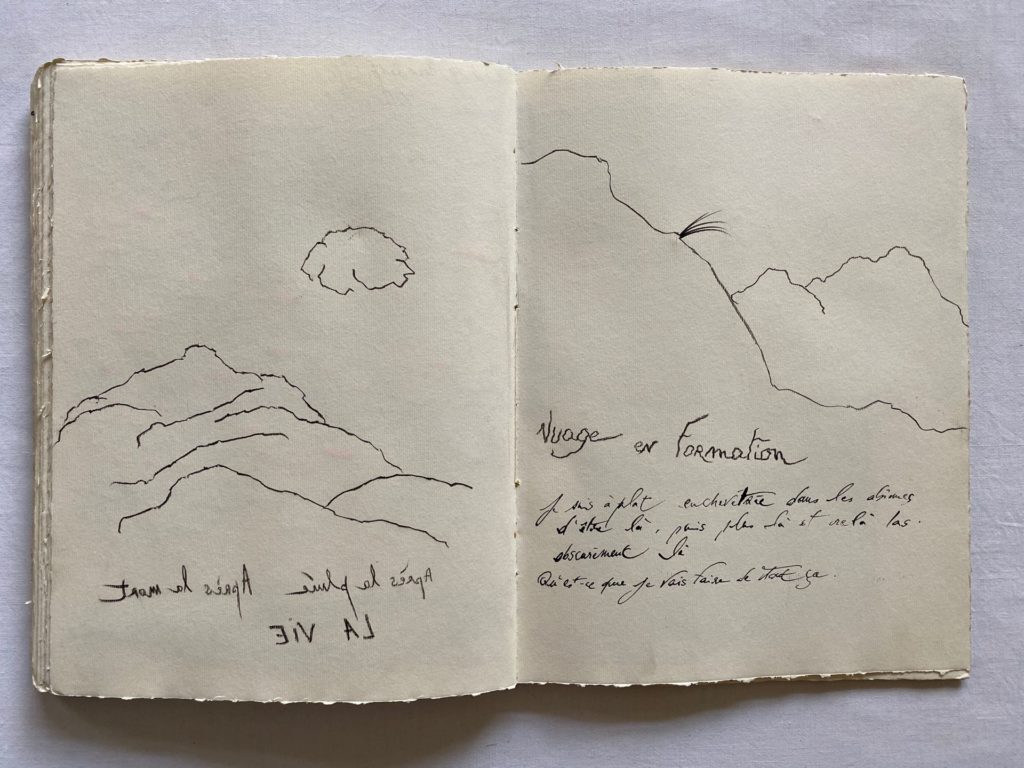 Après la pluie Après la mort
LA ViE
Nuage en Formation
Je suis à plat enchevêtrée dans les abîmes
d'être là, puis plus là et relà las.
obscurément là
Qu'est-ce que je vais faire de tout ça.